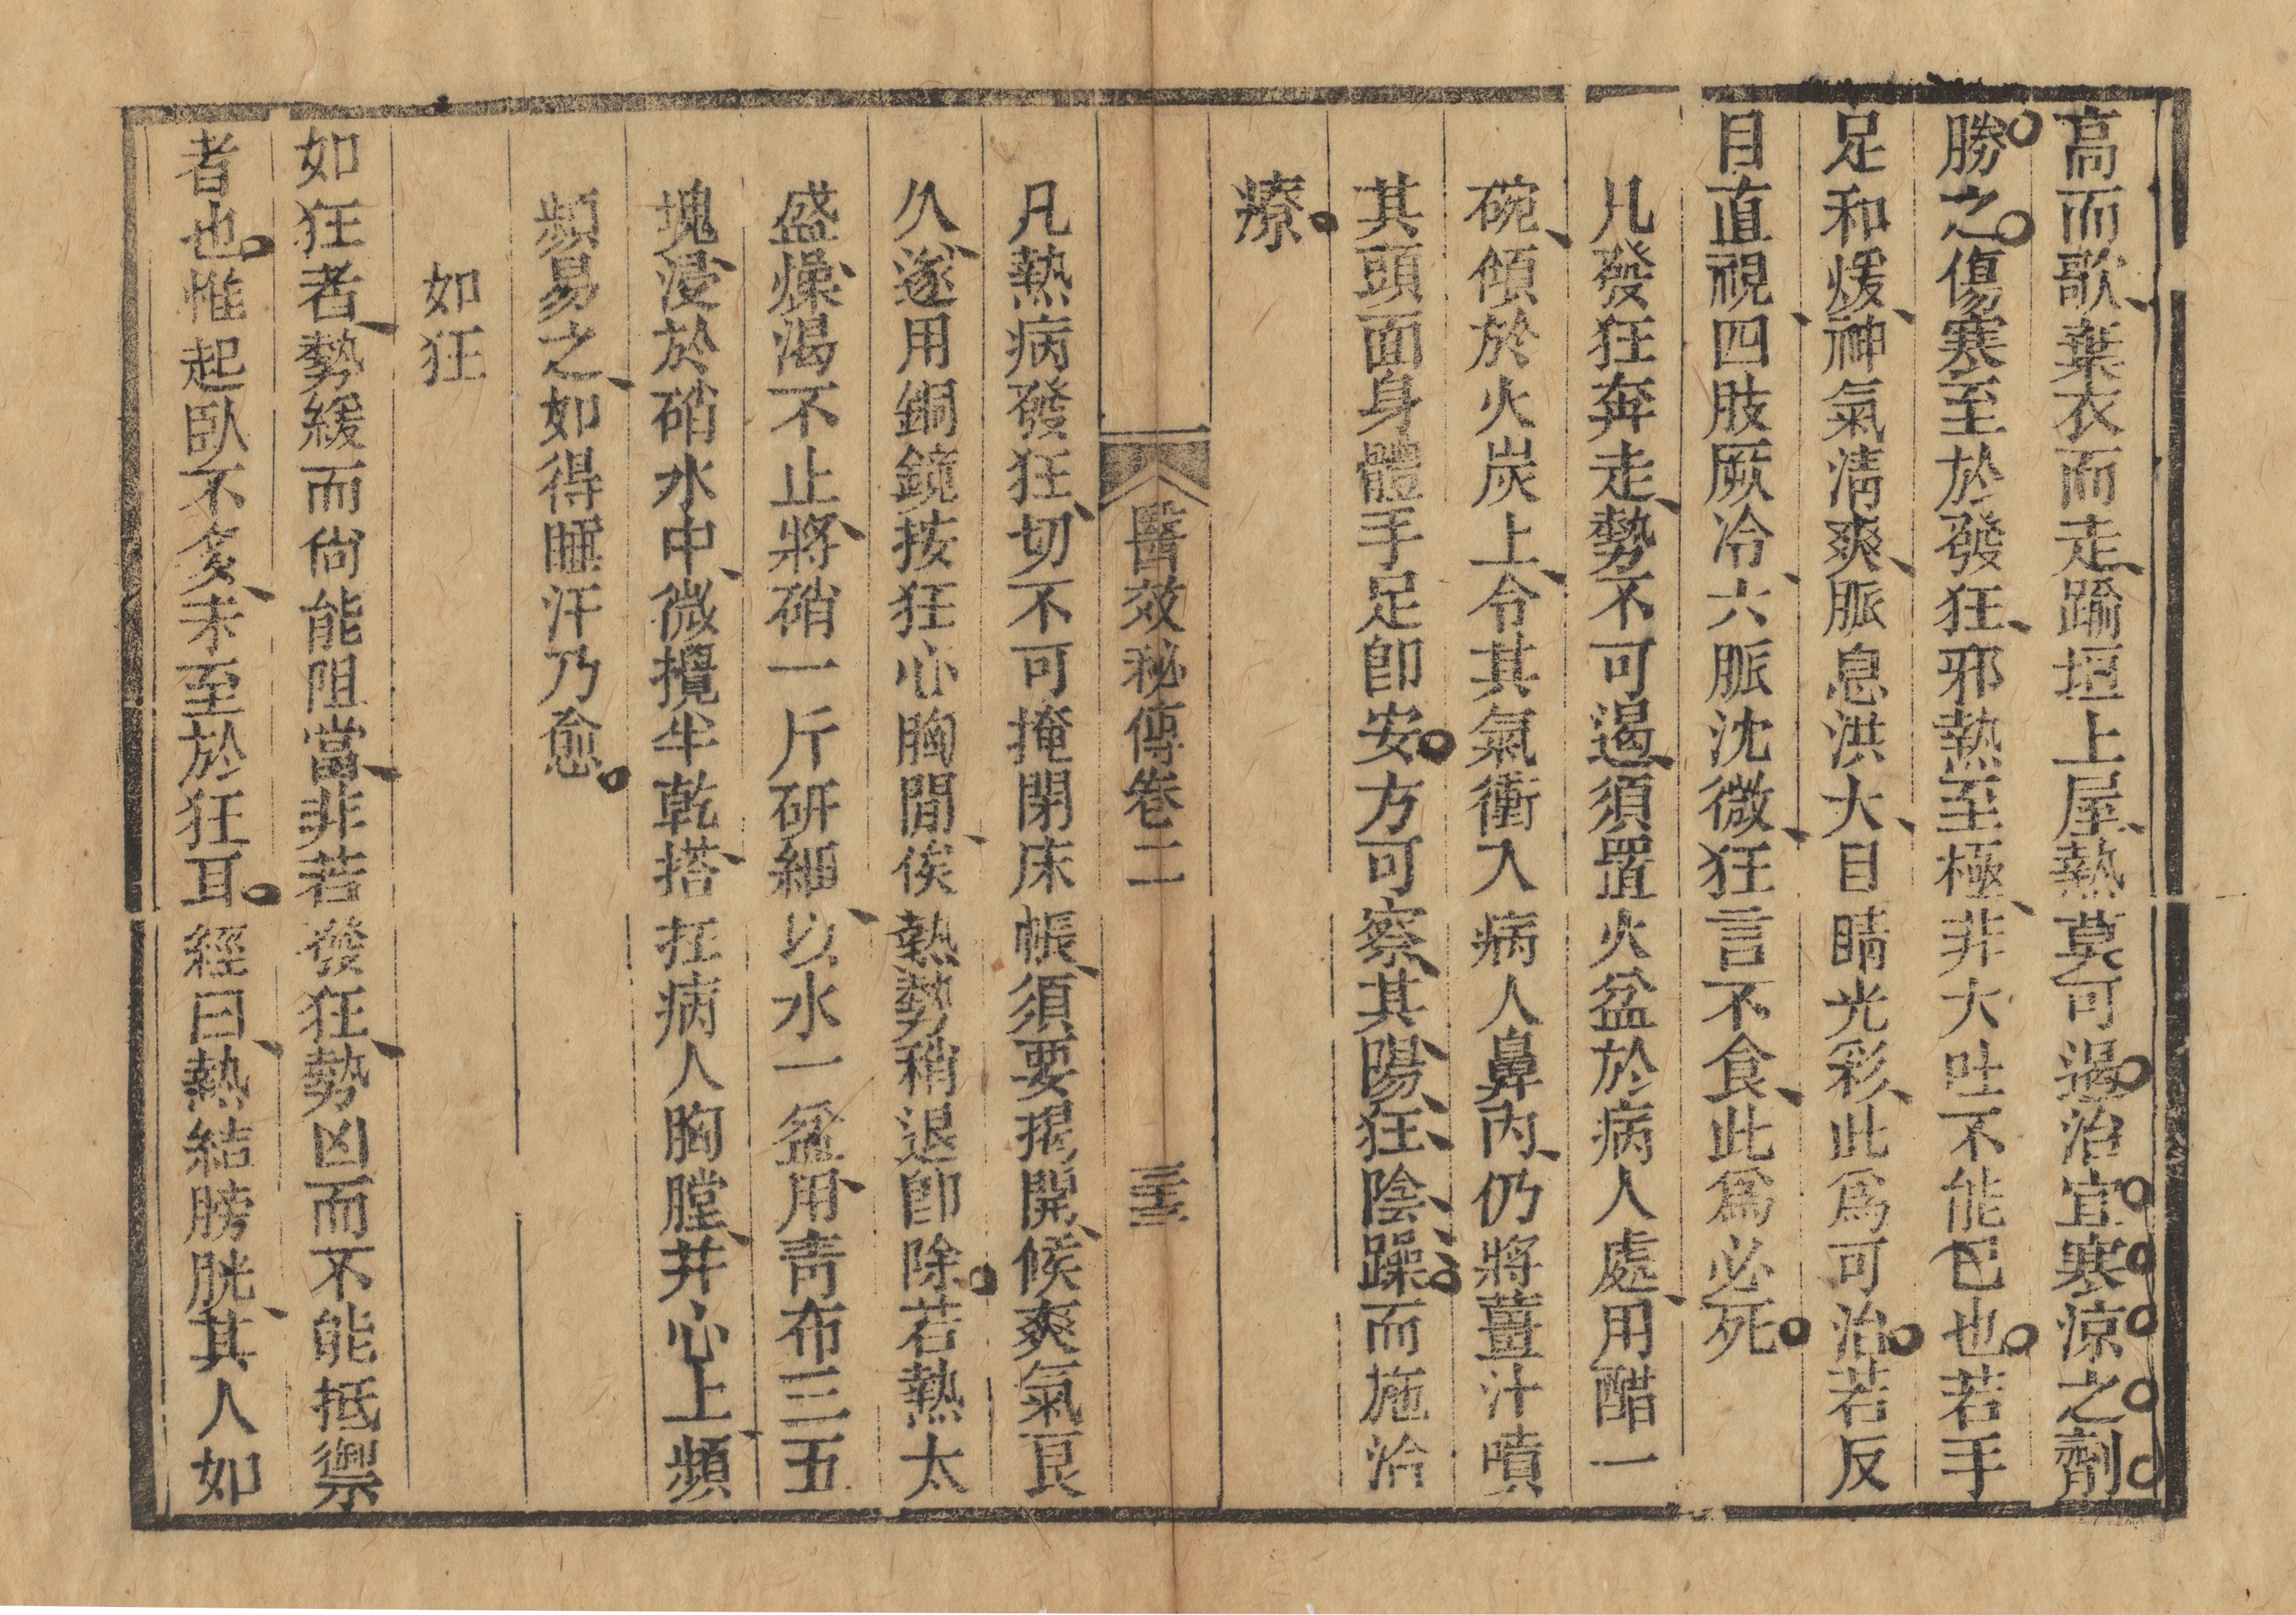 高而歌、葉衣而走、踰垣上屋、熱莫可遏。治宜寒涼之劑
勝之。傷寒至於發狂、邪熱至極、非大吐不能已也。若手
足和煖、神氣清爽、脈息洪大、目睛光彩、此爲可治。若反
目直視、四肢厥冷、六脈沈微、狂言不食、此爲必死。
凡發狂奔走、勢不可遏、須置火盆於病人處、用醋一
碗、傾於火炭上、令其氣衝入病人鼻內、仍將薑汁噴
其頭面身體手足卽安。方可察其陽狂、陰躁。而施治
療。
醫效秘傳卷二　三十三
凡熱病發狂、切不可掩閉床帳、須要揭開、候爽氣良
久、遂用銅鏡按狂心胸間、俟熱勢稍退卽除。若熱太
盛、燥渴不止、將硝一斤硏細、以水一盆、用靑布三五
塊、浸於硝水中、微攪半乾、搭在病人胸膛、幷心上、頻
頻易之、如得睡汗乃愈。
如狂
如狂者、勢緩而尙能阻當、非若發狂、勢凶而不能抵禦
者也。惟起臥不安、未至於狂耳。經曰、熱結膀胱、其人如